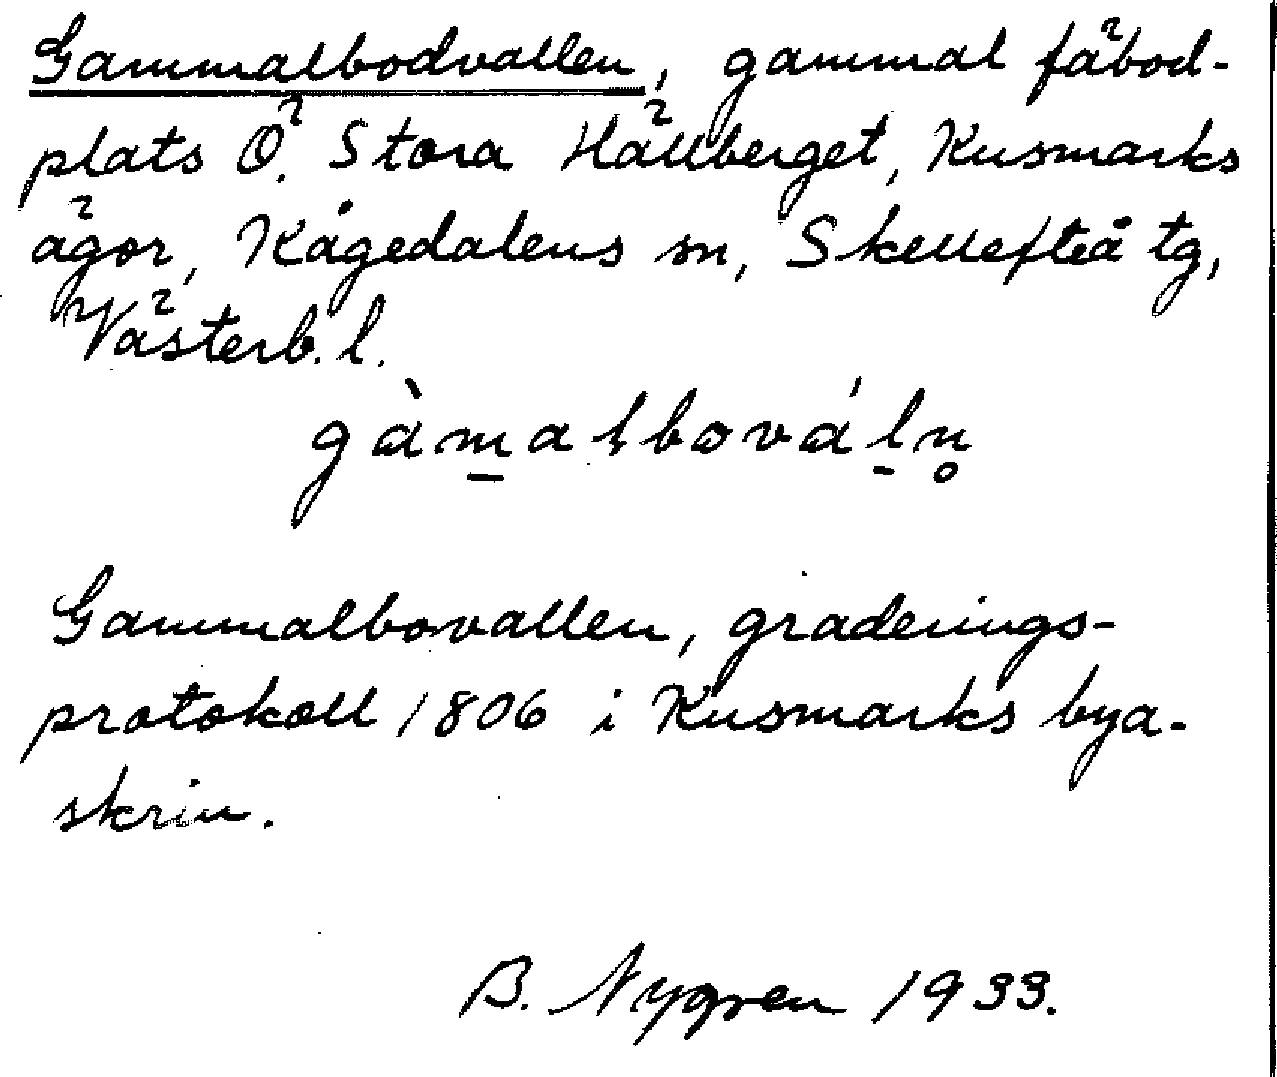 Gammalbodvallen, gammal fäbod-
plats Ö. Stora Hällberget, Kusmarks
ägor, Kågedalens sn, Skellefteå tg,
Västerb. l.
gàmalbováln̥
Gammalbovallen, graderings-
protokoll 1806 i Kusmarks bya-
skrin.
B. Nygren 1933.